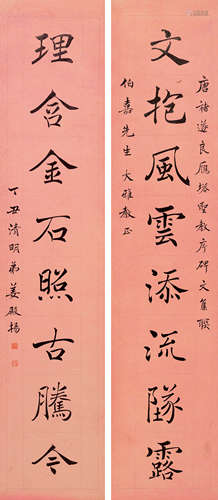 唐褚遂良雁塔聖教序碑文集聯
文抱風雲添流墜露
伯嘉先生大雅教正
理含金石照古騰今
丁丑清明弟姜殿揚